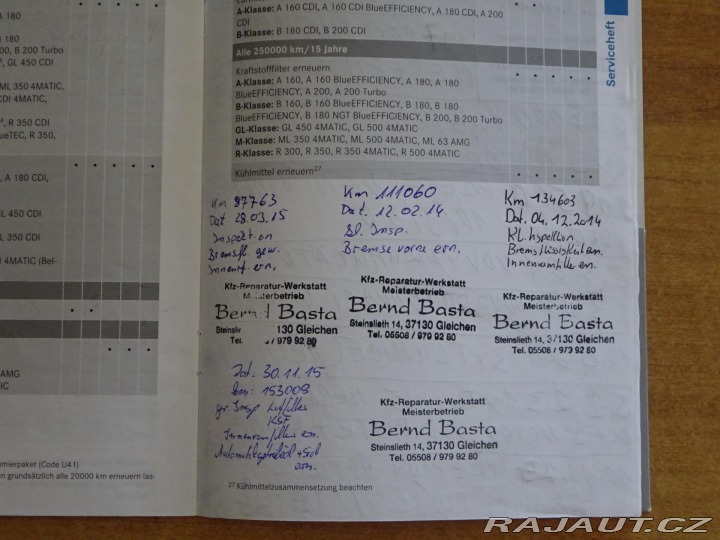 A-Klasse: A 160 CDI, A 160 CDI BlueEFFICIENCY, A 180 CDI, A 200
CDI
B-Klasse: B 180 CDI, B 200 CDI
Alle 250000 km/15 Jahre
Kraftstofffilter erneuern
A-Klasse: A 160, A 160 BlueEFFICIENCY, A 180, A 180
BlueEFFICIENCY, A 200, A 200 Turbo
B-Klasse: B 160, B 160 BlueEFFICIENCY, B 180, B 180
BlueEFFICIENCY, B 180 NGT BlueEFFICIENCY, B 200, B 200 Turbo
GL-Klasse: GL 450 4MATIC, GL 500 4MATIC
M-Klasse: ML 350 4MATIC, ML 500 4MATIC, ML 63 AMG
R-Klasse: R 300, R 350, R 350 4MATIC, R 500 4MATIC
Kühlmittel erneuern27
Serviceheft
A 180
B 200 Turbo
GL 450 CDI
ML 350 4MATIC,
CDI 4MATIC,
R 350 CDI
ueTEC, R 350,
A 180 CDI,
GL 450
ML 350 CDI
4MATIC (Bef-
AMG
IC
mierpaket (Code U41)
en grundsätzlich alle 20000 km erneuern las-
Km 97763
Dat 28.03.15
Inspektion
Bremsfl. gew.
Innenf. ern.
Kfz-Reparatur-Werkstatt
Meisterbetrieb
Bernd Basta
130 Gleichen
Tel. / 979 92 80
Km 111060
Dat. 12.02.14
Insp.
Bremse vorne ern.
Kfz-Reparatur-Werkstatt
Meisterbetrieb
Bernd Basta
Steinslieth 14, 37130 Gleichen
Tel. 05508 / 979 92 80
Km 134603
Dat. 04.12.2014
Kl. Inspektion
Bremsflüssigkeit ern.
Innenraumfilter ern.
Kfz-Reparatur-Werkstatt
Bernd Basta
Steinslieth 14, 37130 Gleichen
Tel. 05508 / 979 92 80
Dat. 30.11.15
km: 153009
gr. Insp Luftfilter
KSF
Innenraumfilter ern.
ern.
Kfz-Reparatur-Werkstatt
Meisterbetrieb
Bernd Basta
Steinslieth 14, 37130 Gleichen
Tel. 05508 / 979 92 80
27 Kühlmittelzusammensetzung beachten
RAJAUT.CZ